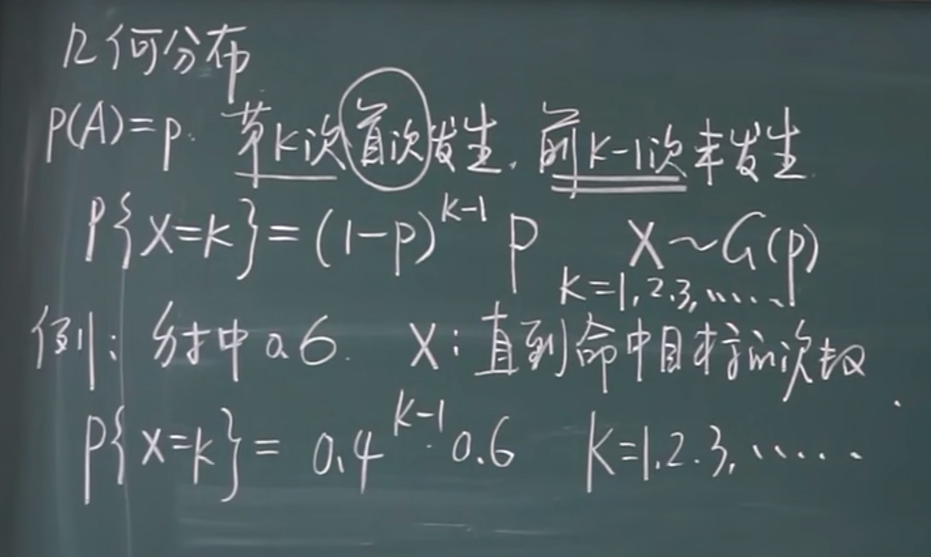 几何分布
P(A)=p. 第K次首次发生. 前K-1次未发生.
P{X=k}=(1-p)^{K-1} P X~G(p)
K=1,2.3,……
例: 射中0.6. X:直到命中目标的次数
P{X=k}= 0.4^{K-1}·0.6 K=1.2.3,……